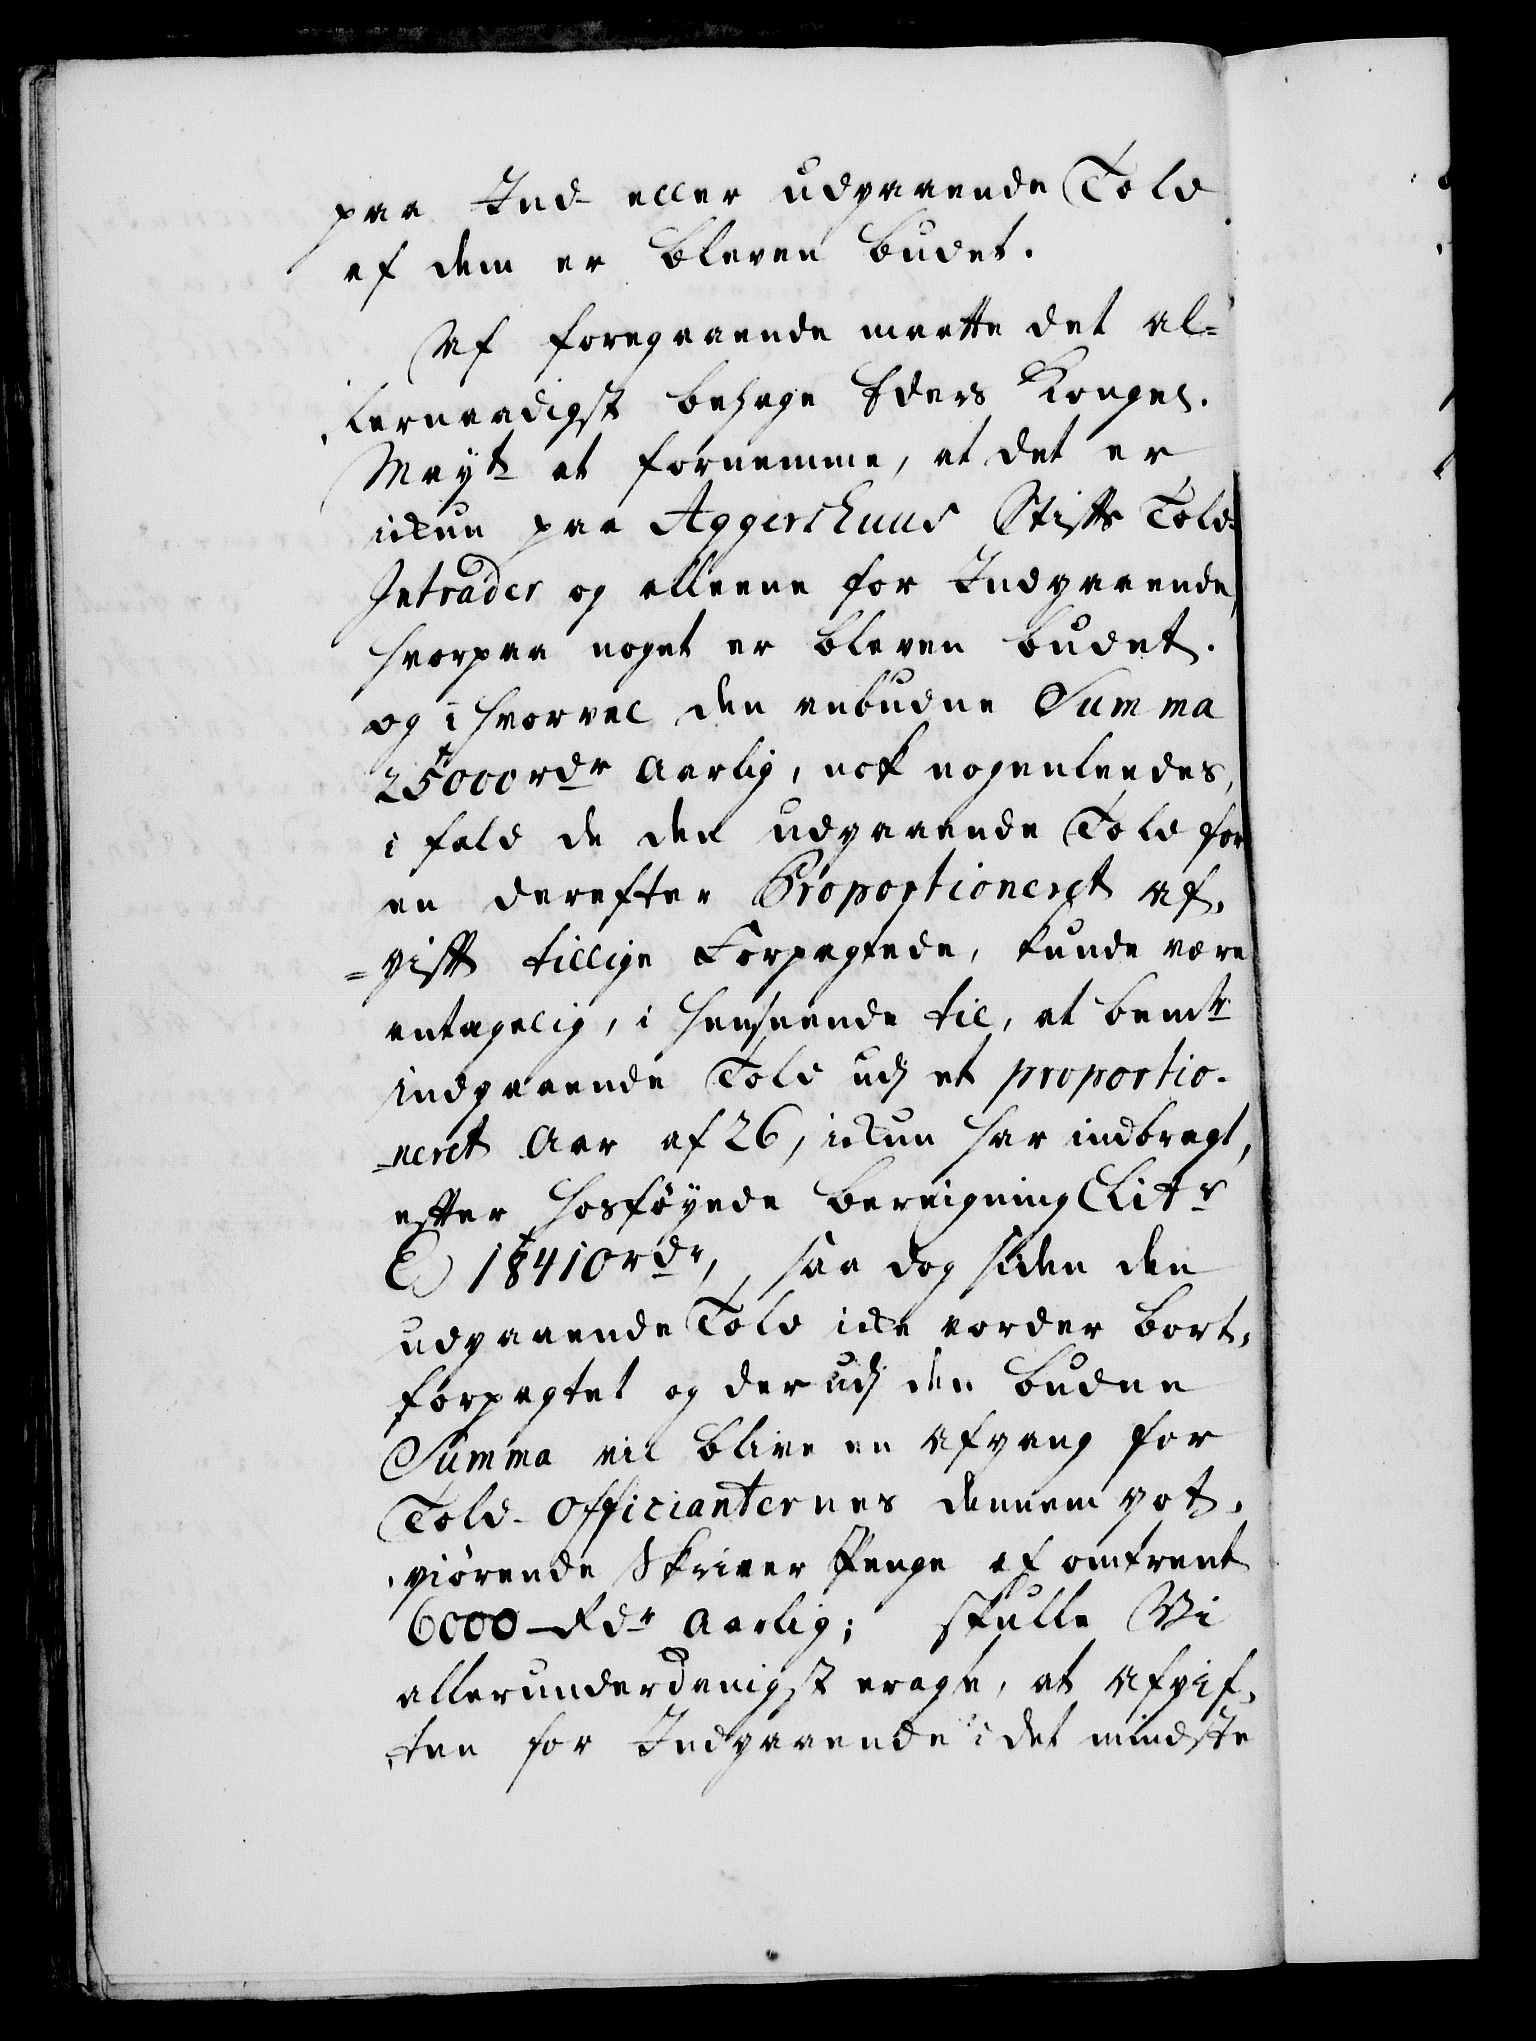 paa Ind- eller udgaaende Told
af dem er bleven budet.
Af foregaaende maatte det al=
lernaadigst behage Eders Kongel.
Mayt at fornemme, at det er
ickun paa Aggershuus Stifts Told-
Intrader og alleene for Indgaaende,
hvorpaa noget er bleven budet.
og i hvorvel den anbudne Summa
25000 rdr Aarlig, nok nogenleedes,
i fald de den udgaaende Told for
en derefter Proportioneret af-
=gift tillige Forpagtede, kunde være
antagelig, i henseende til, at bemte
indgaaende Told udj et proportio-
-neret Aar af 26, ickun har indbragt,
efter hosföyede bereigning Litr
E 18410 rdr, saa dog siden den
udgaaende Told icke vorder bort-
forpagtet og der udj den budne
Summa vil blive en Afgang for
Told-Officianternes dennem got-
giörende Skriver Penge af omtrent
6000 Rdr Aarlig; skulle Vi
allerunderdanigst eragte, at Afgif-
ten for Indgaaende i det mindste